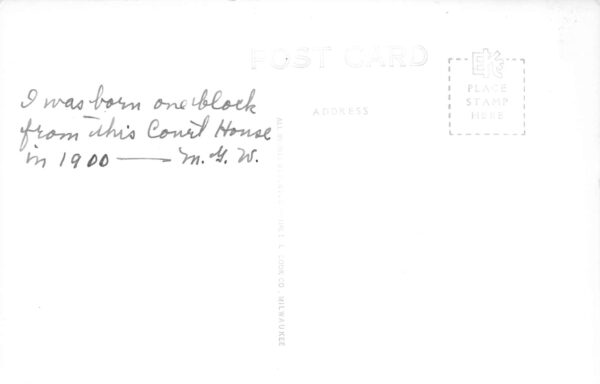 POST CARD
EKC
PLACE
STAMP
HERE
ADDRESS
I was born one block
from this Court House
in 1900 — M. G. W.
L. L. COOK CO., MILWAUKEE